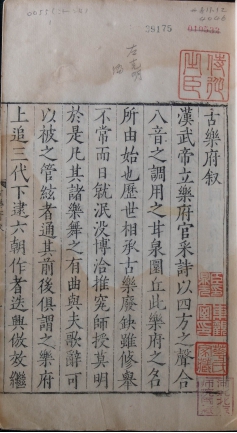 39175
古樂府叙
漢武帝立樂府官采詩以四方之聲合
八音之調用之甘泉圜丘此樂府之名
所由始也歷世相承古樂廢缺雖修舉
不常而日就泯没博洽推究師授莫明
於是凡其諸樂舞之有曲與夫歌辭可
以被之管絃者通其前後俱謂之樂府
上追三代下逮六朝作者迭興倣效繼